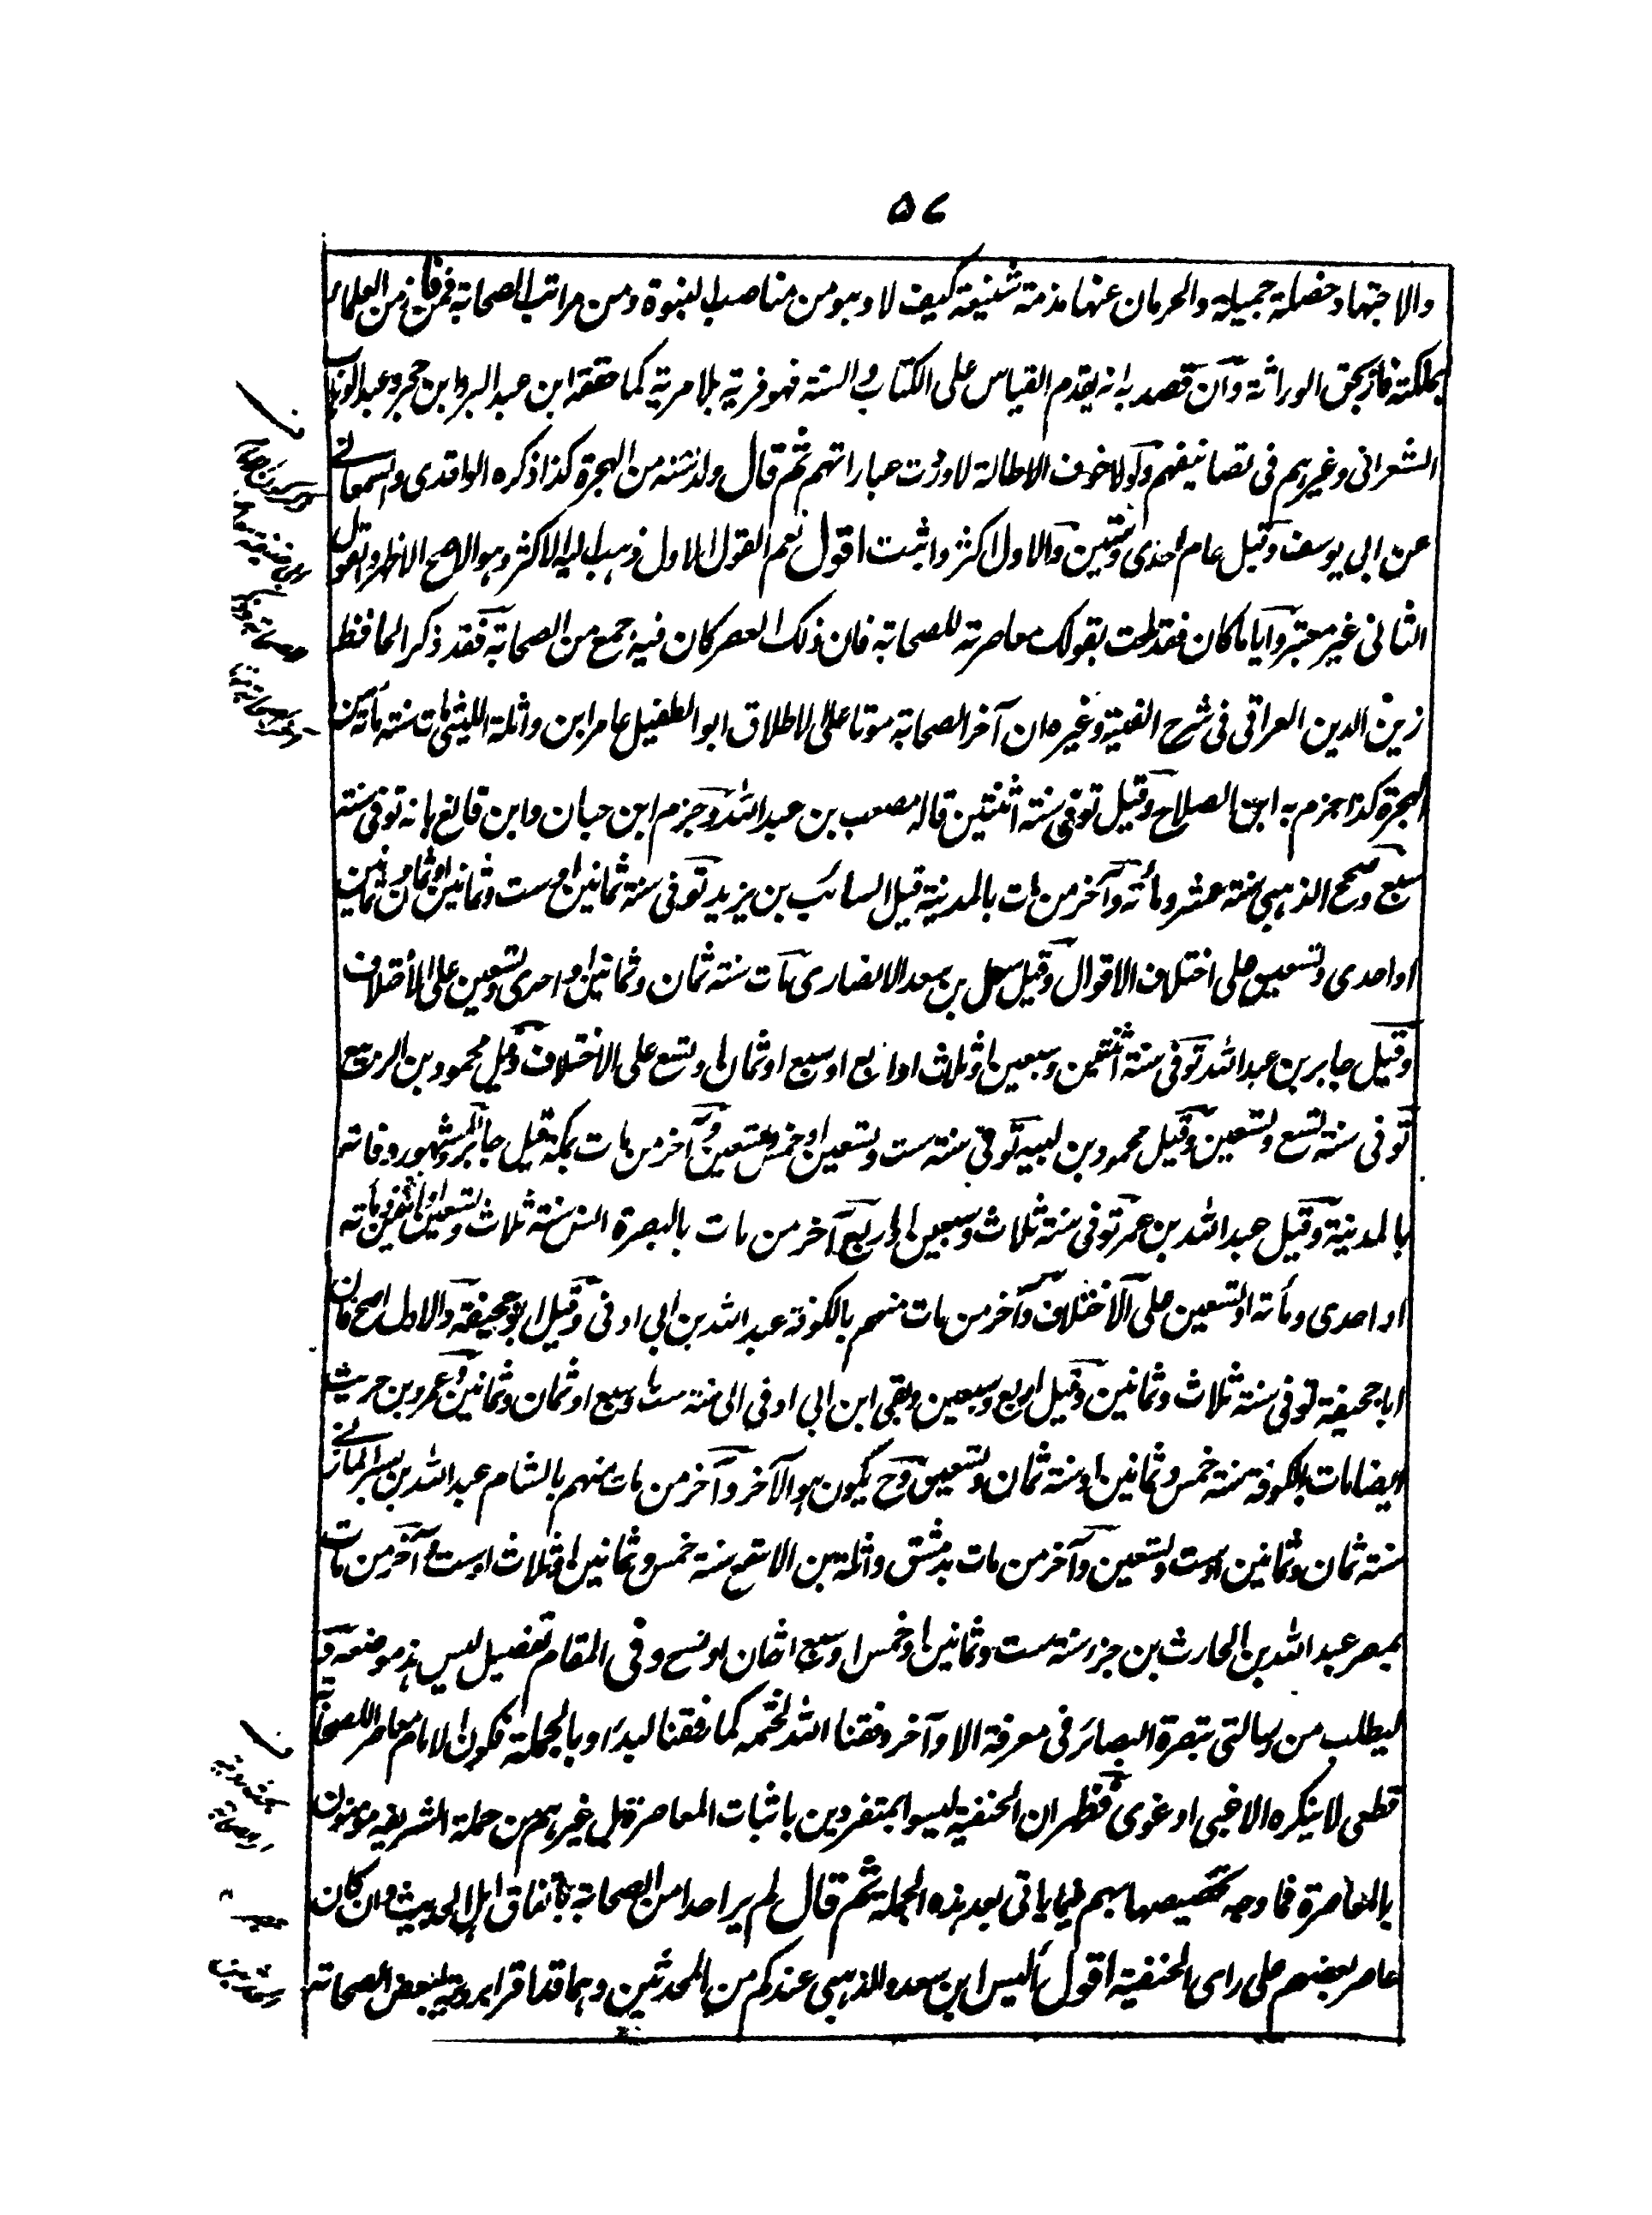 ٥٧
والاجتهاد خصلة جميلة والحرمان عنها مذمة شنيعة كيف لا وهو من مناصب النبوة ومن مراتب الصحابة فمن فاز من العلماء
بملكته فاز بحق الوراثة وان قصد به انه يقدم القياس على الكتاب والسنة فهو فرية بلا مرية كما حققه ابن عبد البر وابن حجر وعبد الوهاب
الشعرانى وغيرهم فى تصانيفهم ولولا خوف الاطالة لاوردت عباراتهم ثم قال ولد سنه من الهجرة كذا ذكره الواقدى والسمعانى
عن ابى يوسف وقيل عام احدى وستين والاول اكثر واثبت اقول نعم القول الاول ذهب اليه الاكثر وهو الاصح الاظهر والقول
الثانى غير معتبر وايا ما كان فقد لحت بقولك معاصرته للصحابة فان ذلك العصر كان فيه جمع من الصحابة فقد ذكر الحافظ
زين الدين العراقى فى شرح الفية وغيره ان آخر الصحابة موتا على الاطلاق ابو الطفيل عامر ابن واثلة الليثى مات سنة مأته من
الهجرة كذا جزم به ابن الصلاح وقيل توفى سنة اثنتين قاله مصعب بن عبد الله وجزم ابن حبان وابن قانع بانه توفى سنة
سبع وصحح الذهبى سنة عشر ومأته وآخر من مات بالمدينة قيل السائب بن يزيد توفى سنة ثمانين او ست وثمانين او ثمان وثمانين
او احدى وتسعين على اختلاف الاقوال وقيل سهل بن سعد الانصارى مات سنة ثمان وثمانين او احدى وتسعين على الاختلاف
وقيل جابر بن عبد الله توفى سنة اثنتين وسبعين او ثلاث او اربع او سبع او ثمان او تسع على الاختلاف وقيل محمود بن الربيع
توفى سنة تسع وتسعين وقيل محمود بن لبيد توفى سنة ست وتسعين او خمس وتسعين وآخر من مات بمكة قيل جابر والمشهور وفاته
بالمدينة وقيل عبد الله بن عمر توفى سنة ثلاث وسبعين او اربع وآخر من مات بالبصرة انس سنة ثلاث وتسعين او اثنتين ومأته
او احدى ومأته او تسعين على الاختلاف وآخر من مات منهم بالكوفة عبد الله بن ابى اوفى وقيل ابو جحيفة والاول اصح فان
ابا جحيفة توفى سنة ثلاث وثمانين وقيل اربع وسبعين وبقى ابن ابى اوفى الى سنة ست او سبع او ثمان وثمانين وعمرو بن حريث
ايضا مات بالكوفة سنة خمس وثمانين او سنة ثمان وتسعين وح يكون هو الآخر وآخر من مات منهم بالشام عبد الله بن بسر المازنى
سنة ثمان وثمانين او ست وتسعين وآخر من مات بدمشق واثلة بن الاسقع سنة خمس وثمانين او ثلاث او ست وآخر من مات
بمصر عبد الله بن الحارث بن جزء سنة ست وثمانين او خمس او سبع او ثمان او تسع وفى المقام تفصيل ليس هذا موضعه و
ليطلب من رسالتى تبصرة البصائر فى معرفة الاواخر وفقنا الله لختمه كما وفقنا لبدئه وبالجملة فكون الامام معاصرا للصحابة
قطعى لا ينكره الا غبى او غوى فظهر ان الحنفية ليسوا بمتفردين باثبات المعاصرة بل غيرهم من حملة الشريعة موقنون
بالمعاصرة فما وجه تخصيصها بهم فيما ياتى بعد هذه الجملة ثم قال لم ير احدا من الصحابة باتفاق اهل الحديث وان كان
عاصر بعضهم على راى الحنفية اقول أليس ابن سعد والذهبى عندكم من المحدثين وهما قد اقرا برويته لبعض الصحابة